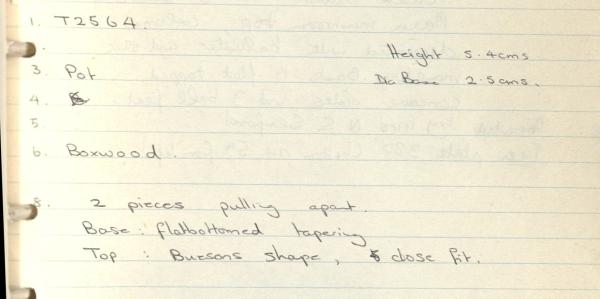 1. T2564.
Height 5.4cms
3. Pot Dia Base 2.5cms.
4.
5.
6. Boxwood.
8. 2 pieces pulling apart.
Base: flatbottomed tapering
Top : shape, close fit.